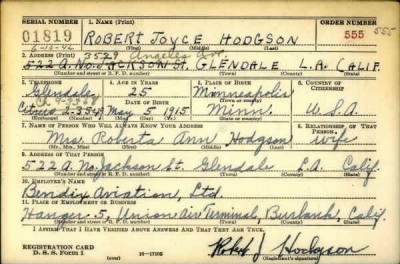 SERIAL NUMBER 1. NAME (Print) ORDER NUMBER
01819 ROBERT JOYCE HODGSON 555 555
(First) (Middle) (Last)
2. ADDRESS (Print) 3529 Angeles
522 A. No. JACKSON St. GLENDALE L.A. CALIF.
(Number and street or R. F. D. number) (Town) (County) (State)
3. TELEPHONE 4. AGE IN YEARS 5. PLACE OF BIRTH 6. COUNTRY OF CITIZENSHIP
Glendale 25 Minneapolis
DATE OF BIRTH (Town or county)
May 5 1915 Minn. U.S.A.
(Exchange) (Number) (Mo.) (Day) (Yr.) (State or country)
7. NAME OF PERSON WHO WILL ALWAYS KNOW YOUR ADDRESS 8. RELATIONSHIP OF THAT PERSON
Mrs. Roberta Ann Hodgson wife
(Mr., Mrs., Miss) (First) (Middle) (Last)
9. ADDRESS OF THAT PERSON
522 A No Jackson St. Glendale L.A. Calif.
(Number and street or R. F. D. number) (Town) (County) (State)
10. EMPLOYER'S NAME
Bendix Aviation, Ltd.
11. PLACE OF EMPLOYMENT OR BUSINESS
Hanger 5, Union Air Terminal, Burbank, Calif.
(Number and street or R. F. D. number) (Town) (County) (State)
I AFFIRM THAT I HAVE VERIFIED ABOVE ANSWERS AND THAT THEY ARE TRUE.
REGISTRATION CARD
D. S. S. Form 1 16—17105 Robert J. Hodgson
(Registrant's signature)